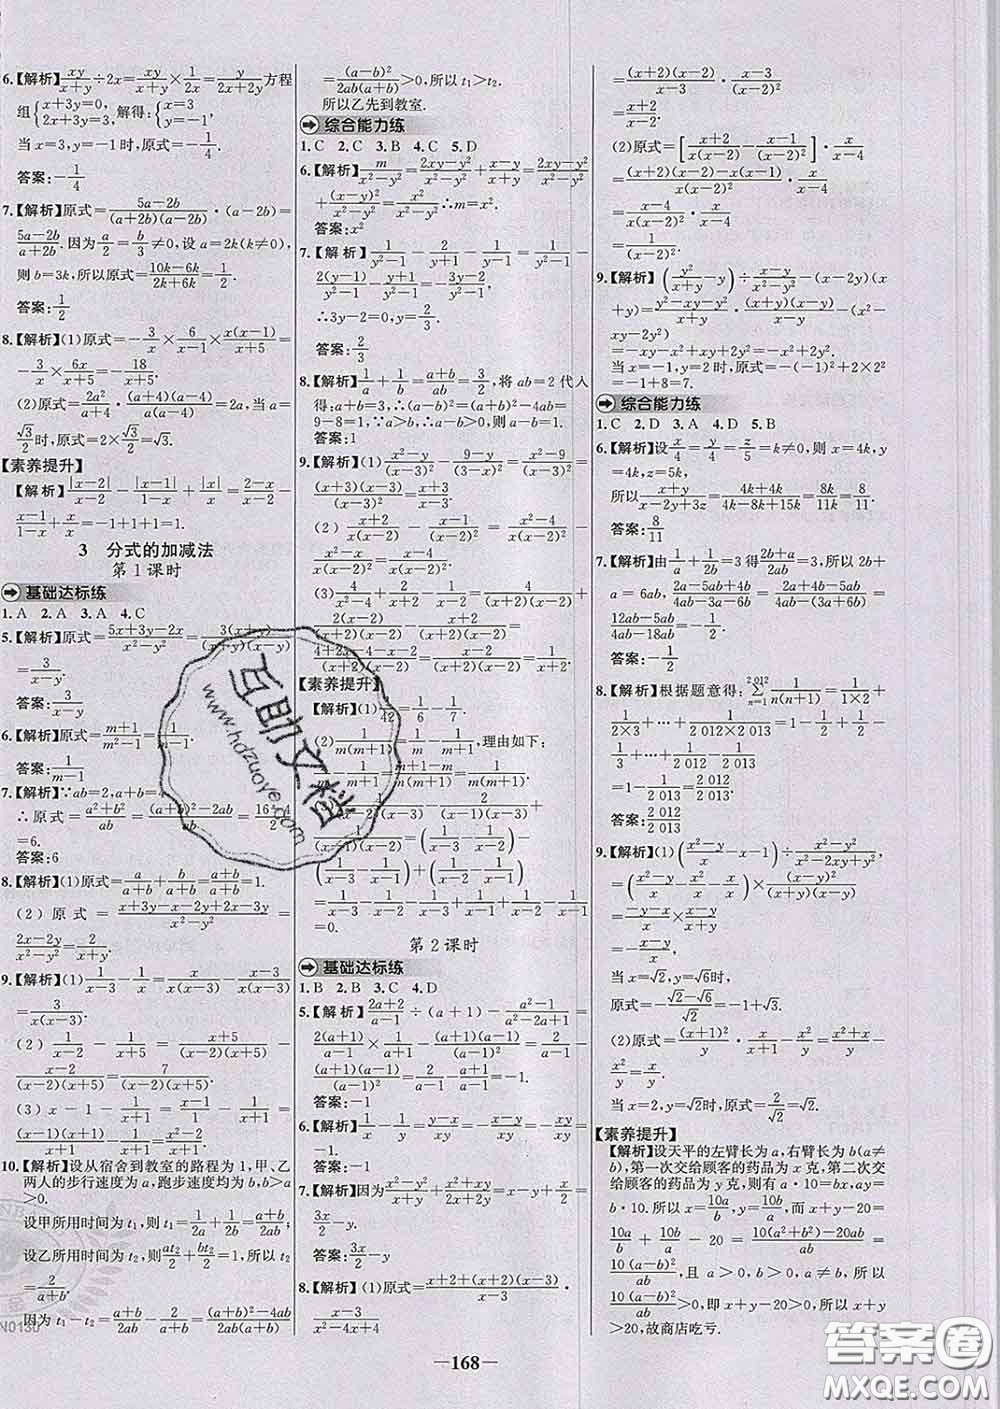 6.【解析】xy/(x+y)÷2x=xy/(x+y)×1/(2x)=y/(2x+2y)方程
组{x+3y=0, 2x+3y=3,解得:{x=3 y=-1,
当x=3,y=-1时,原式=-1/4.
答案:-1/4
7.【解析】原式=(5a-2b)/((a+2b)(a-2b))·(a-2b)=
(5a-2b)/(a+2b).因为a/2=b/3≠0,设a=2k(k≠0),
则b=3k,所以原式=(10k-6k)/(2k+6k)=1/2.
答案:1/2
8.【解析】(1)原式=-3/x×6/(x-1)×x(x-1)/(x+5)=
-3/x×6x/(x+5)=-18/(x+5).
(2)原式=2a²/(a+4)·(a+4)(a-4)/(a(a-4))=2a,当a=
√3/2时,原式=2×√3/2=√3.
【素养提升】
【解析】|x-2|/(x-2)-|x-1|/(1-x)+|x|/x=(2-x)/(x-2)-
(x-1)/(1-x)+x/x=-1+1+1=1.
3 分式的加减法
第1课时
基础达标练
1.A 2.A 3.A 4.C
5.【解析】原式=(5x+3y-2x)/(x²-y²)=3(x+y)/((x+y)(x-y))=
3/(x-y).
答案:3/(x-y)
6.【解析】原式=(m+1)/(m²-1)=1/(m-1).
答案:1/(m-1)
7.【解析】∵ab=2,a+b=4
∴原式=(a²+b²)/ab=((a+b)²-2ab)/ab=(16-4)/2
=6.
答案:6
8.【解析】(1)原式=a/(a+b)+b/(a+b)=(a+b)/(a+b)=1.
(2)原式=(x+3y-x-2y+2x-3y)/(x²-y²)=
(2x-2y)/(x²-y²)=2/(x+y).
9.【解析】(1)1/(x-3)-1/x=x/(x(x-3))-(x-3)/(x(x-3))=
3/(x(x-3)).
(2)1/(x-2)-1/(x+5)=(x+5)/((x-2)(x+5))-
(x-2)/((x-2)(x+5))=7/((x-2)(x+5)).
(3)x-1-1/(x+1)=
(x-1)(x+1)/(x+1)-1/(x+1)=(x²-2)/(x+1).
10.【解析】设从宿舍到教室的路程为1,甲、乙
两人的步行速度为a,跑步速度均为b,b>a
>0.
设甲所用时间为t₁,则t₁=1/(2a)+1/(2b)=(a+b)/(2ab);
设乙所用时间为t₂,则at₂/2+bt₂/2=1,所以t₂
=2/(a+b).
因为t₁-t₂=(a+b)/(2ab)-2/(a+b)=((a+b)²-4ab)/(2ab(a+b))
=(a-b)²/(2ab(a+b))>0,所以t₁>t₂.
所以乙先到教室.
综合能力练
1.C 2.C 3.B 4.C 5.D
6.【解析】m/(x²-y²)=(2xy-y²)/(x²-y²)+(x-y)/(x+y)=(2xy-y²)/(x²-y²)
+(x-y)²/(x²-y²)=x²/(x²-y²)∴m=x².
答案:x²
7.【解析】1/(y²-1)-2/(y+1)-1/(1-y)=1/(y²-1)-
2(y-1)/(y²-1)+(y+1)/(y²-1)=-(3y-4)/(y²-1)=-2/(y²-1),
∴3y-2=0,y=2/3.
答案:2/3
8.【解析】1/a+1/b=(a+b)/ab=3/2,将ab=2代入
得:a+b=3,∴(a-b)²=(a+b)²-4ab=
9-8=1,∵a>b,∴a-b>0,则a-b=1.
答案:1
9.【解析】(1)x²/(x-3)²-9/(3-x)²=(x²-9)/(x-3)²=
(x+3)(x-3)/(x-3)²=(x+3)/(x-3).
(2)(x+2)/(x(x-2))-(x-4)/(x(x-2))=
6/(x(x-2)).
(3)4/(x²-4)+2/(x+2)-1/(x-2)=
(4+2x-4-x-2)/((x+2)(x-2))=(x-2)/((x+2)(x-2))=1/(x+2).
【素养提升】
【解析】(1)1/42=1/6-1/7.
(2)1/(m(m+1))=1/m-1/(m+1),理由如下:
1/m-1/(m+1)=(m+1-m)/(m(m+1))=1/(m(m+1)).
1/(x-1))+(1/(x-2)-
1/(x-1))=1/(x-3)-1/(x-1)-1/(x-3)+1/(x-1)
=0.
第2课时
基础达标练
1.B 2.B 3.C 4.D
5.【解析】(2a+2)/(a-1)÷(a+1)-(a²-1)/(a²-2a+1)=
2(a+1)/(a-1)×1/(a+1)-(a+1)(a-1)/(a-1)²=2/(a-1)-
(a+1)(a-1)/(a-1)²=2/(a-1)-(a+1)/(a-1)=-1.
答案:-1
6.【解析】
答案:-1
7.【解析】
答案:3x/2-y
8.【解析】(1)原式=(x+2+(x+2)(x-3))/(x-3)·
(x-3)/(x²-4x+4)
=(x+2)(x-2)/(x-3)·(x-3)/(x-2)²
=(x+2)/(x-2).
(2)原式=[(x+2)/(x(x-2))-(x-1)/(x-2)²]·x/(x-4)
=((x+2)(x-2)-x(x-1))/(x(x-2)²)·x/(x-4)
=(x-4)/(x(x-2)²)·x/(x-4)
=1/(x-2)².
9.【解析】(y²/(x+y)-y)÷(x-y)/(x²-y²)-(x-2y)(x
+y)=(y²-xy-y²)/(x+y)·(x+y)(x-y)/(x-y)-(x²+
xy-2y²)
=-xy-x²-xy+2y²=-x²-2xy+2y².
当x=-1,y=2时,原式=-(-1)²+2×2+2×2²
=-1+8=7.
综合能力练
1.C 2.D 3.A 4.D 5.B
6.【解析】设x/4=y/4=z/5=k≠0,则x=4k,
y=4k,z=5k,
所以(x+y)/(x-2y+3z)=(4k+4k)/(4k-8k+15k)=8k/11k=8/11.
答案:8/11
7.【解析】由1/a+1/(2b)=3得(2b+a)/(2ab)=3,所以2b+
a=6ab,(2a-5ab+4b)/(4ab-3a-6b)=(2a+4b-5ab)/(4ab-3a-6b)=
(12ab-5ab)/(4ab-18ab)=-1/2.
答案:-1/2
8.【解析】根据题意得:Σ(n=1→2 012)1/(n(n+1))=1/(1×2)+
1/(2×3)+…+1/(2 012×2 013)=1-1/2+1/2-
1/3+…+1/2 012-1/2 013=1-1/2 013=2 012/2 013.
答案:2 012/2 013
9.【解析】(1)((x²-y)/x-x-1)÷(x²-y²)/(x²-2xy+y²)
=((x²-y)/x-x²/x-x/x)×(x-y)²/((x+y)(x-y))
=(-y-x)/x×(x-y)/(x+y)
=-(x-y)/x.
当x=√2,y=√6时,
原式=-(√2-√6)/√2=-1+√3.
(2)原式=(x+1)²/y·x/(x+1)-x/y=(x²+x)/y-
x/y=x²/y.
当x=2,y=√2时,原式=
【素养提升】
【解析】设天平的左臂长为a,右臂长为b(a≠
b),第一次交给顾客的药品为x克,第二次交
给顾客的药品为y克,则有a·10=bx,ay=
b·10.所以x=10a/b,y=10b/a,所以x+y=
10a/b+10b/a-20=(10a²+10b²-20ab)/ab=
10(a-b)²/ab.因为a>0,b>0,a≠b,所以
10(a-b)²/ab>0,即x+y-20>0,所以x+y
>20,故商店吃亏.
—168—
互助文档
www.hdzuoye.com
答案圈
MXQE.COM
N0130